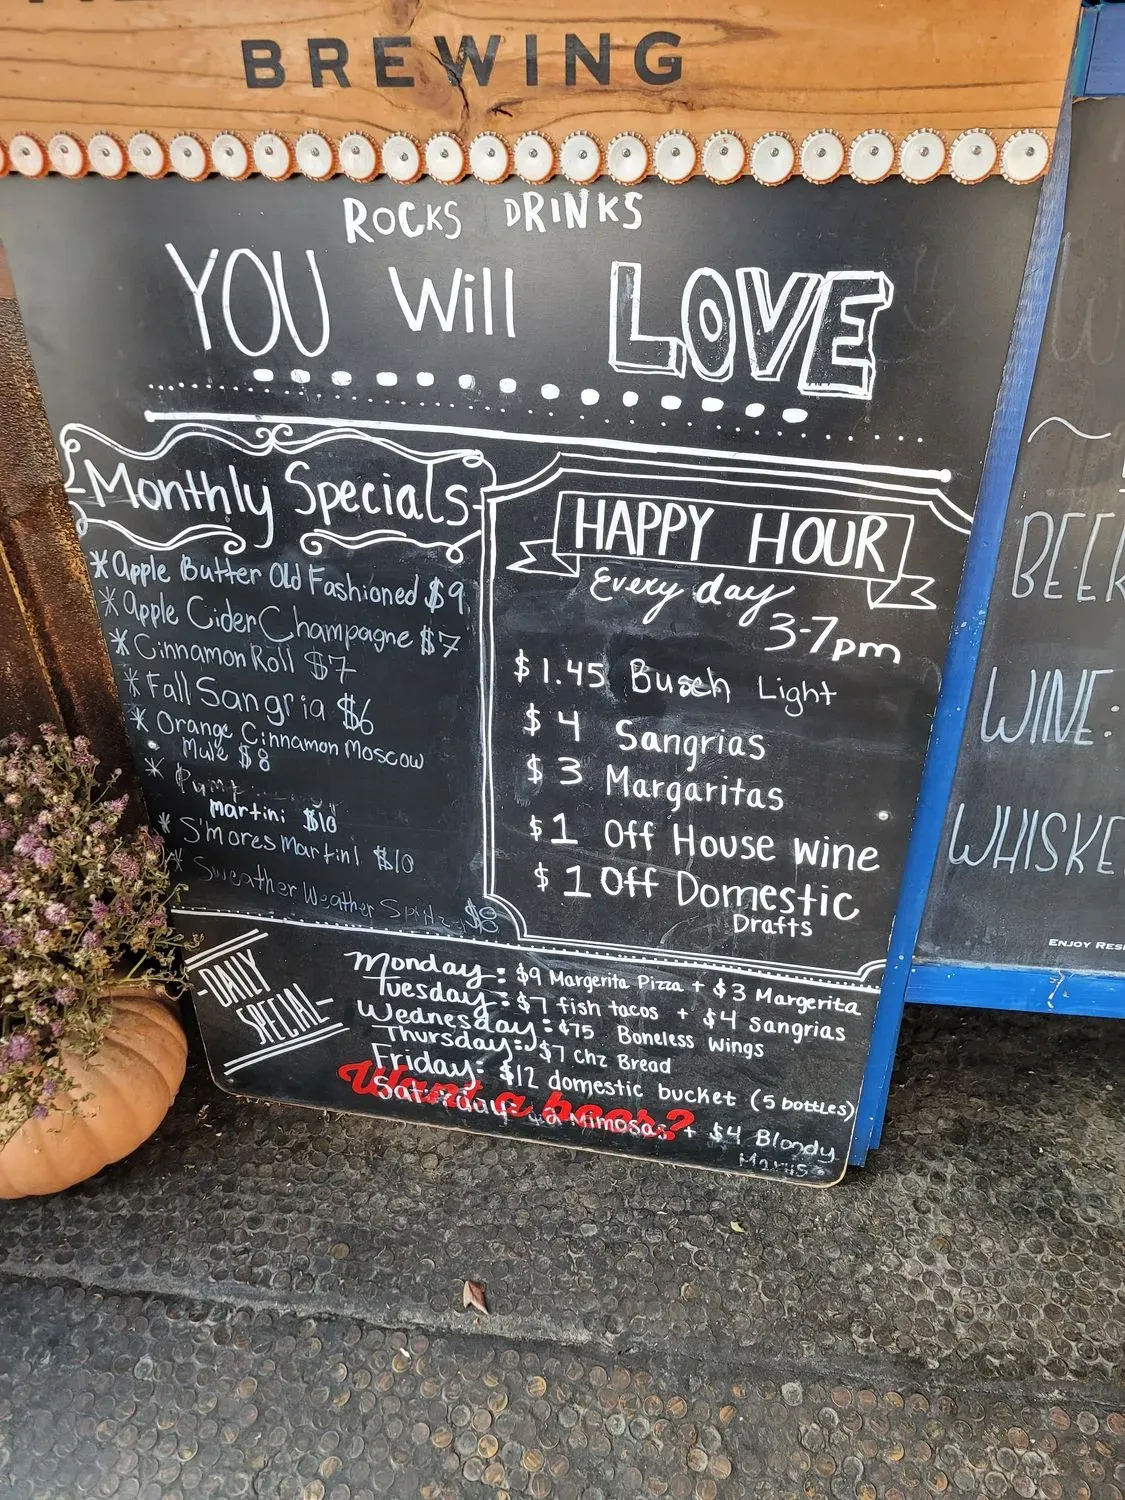 BREWING
ROCKS DRINKS
YOU Will LOVE
Monthly Specials
* Apple Butter Old Fashioned $9
* Apple Cider Champagne $7
* Cinnamon Roll $7
* Fall Sangria $6
* Orange Cinnamon Moscow
Mule $8
*
Martini $10
* S'mores Martini $10
* Sweather Weather Spritz $8
HAPPY HOUR
Every day
3-7pm
$1.45 Busch Light
$4 Sangrias
$3 Margaritas
$1 Off House Wine
$1 Off Domestic
Drafts
DAILY
SPECIAL
Monday: $9 Margerita Pizza + $3 Margerita
Tuesday: $7 fish tacos + $4 Sangrias
Wednesday: $75 Boneless Wings
Thursday: $7 Chz Bread
Friday: $12 domestic bucket (5 bottles)
Want a beer?
Saturday: Mimosas + $4 Bloody
WINE:
ENJOY